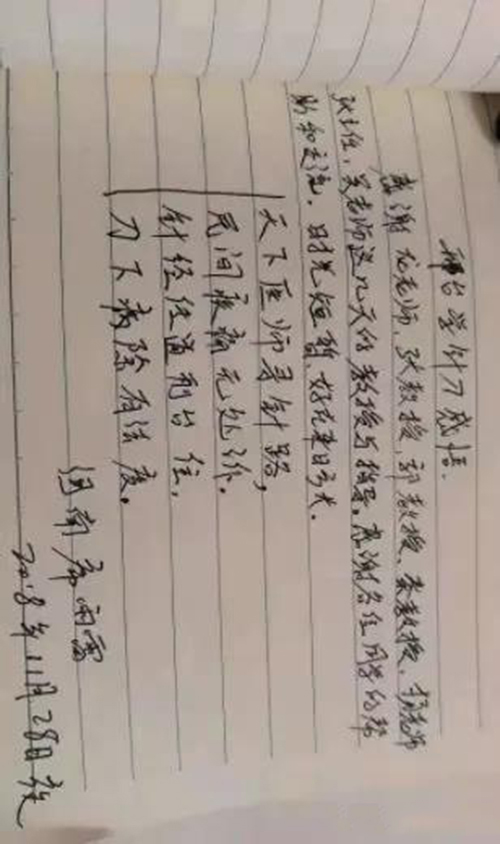 邢台学针刀感悟.
感谢龙老师,张教授,郭教授、秦教授、杨老师
张主任,吴老师这几天的教授与指导。感谢各位同学的帮
助和交流。时光短暂、好在来日方长.
天下医师寻针路,
民间疾痛无处诉。
针经经通邢台住,
刀下病除有法度。
河南 席雨雷
2018年11月28日夜